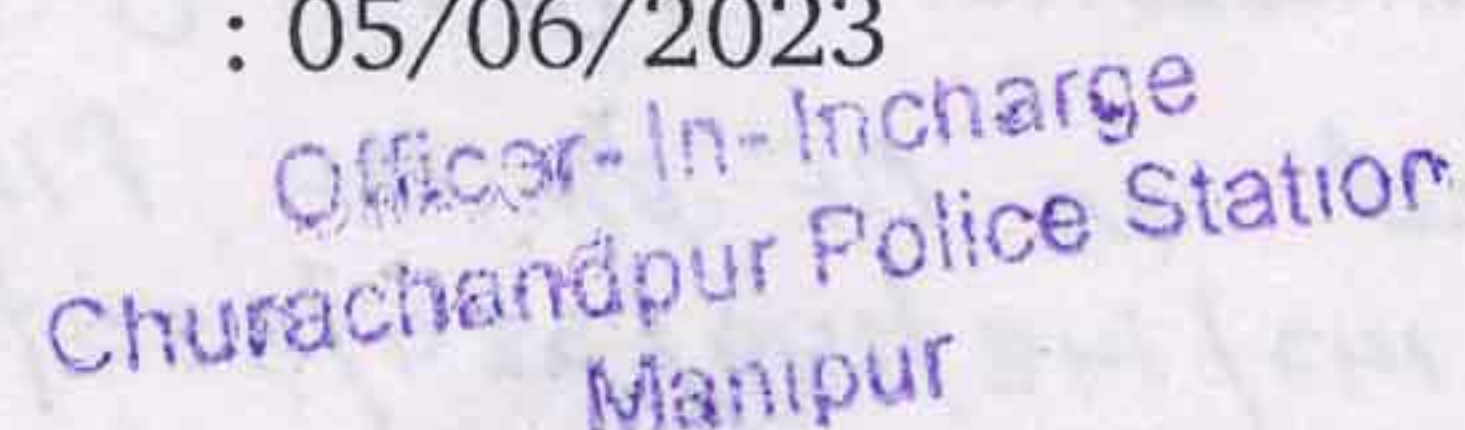 : 05/06/2023
Officer-In-Incharge
Churachandpur Police Station
Manipur